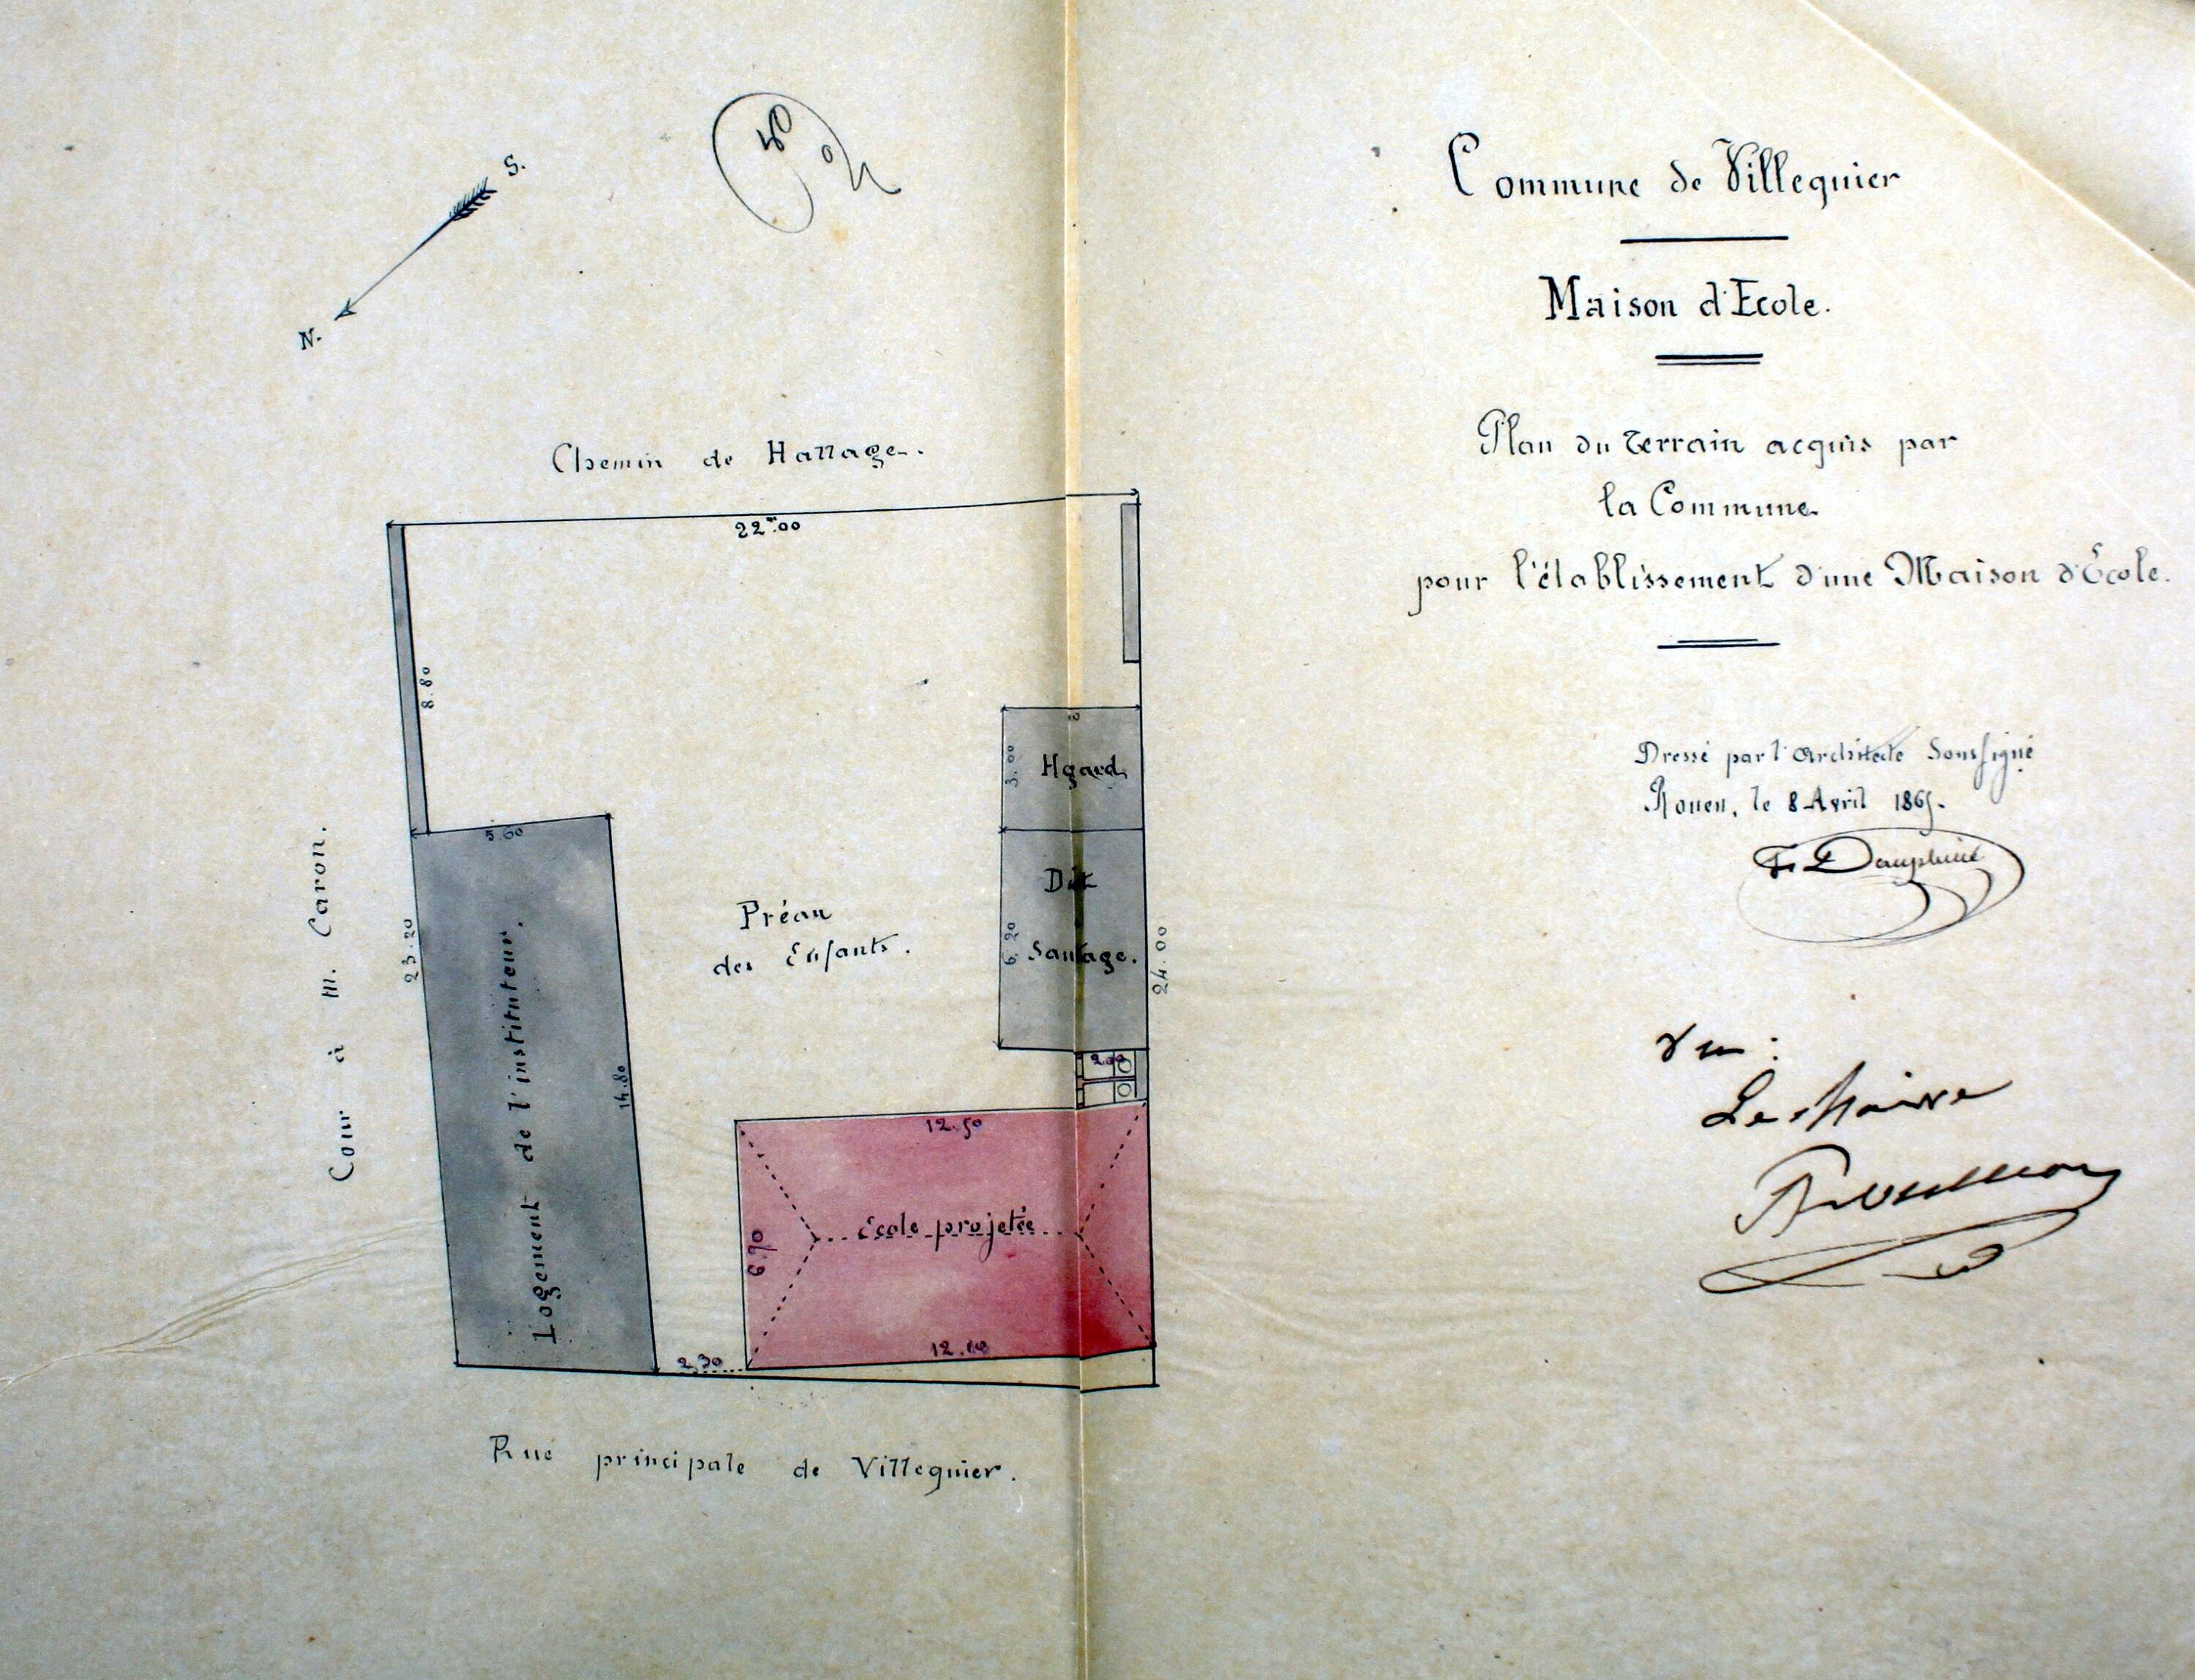 S.
N.
Commune de Villequier
Maison d'Ecole.
Plan du terrain acquis par
la Commune
pour l'établissement d'une Maison d'École.
Dressé par l'Architecte Soussigné
Rouen, le 8 Avril 1865.
F. Dauphiné
Vu :
Le Maire
Chemin de Hallage.
22.m00
8.80
3.00
Hgard
5.60
Cour à M. Caron.
23.20
Logement de l'instituteur.
14.80
Préau
des Enfants.
Dit
Sautage.
6.20
24.00
12.50
Ecole projetée
6.70
2.30
Rue principale de Villequier.